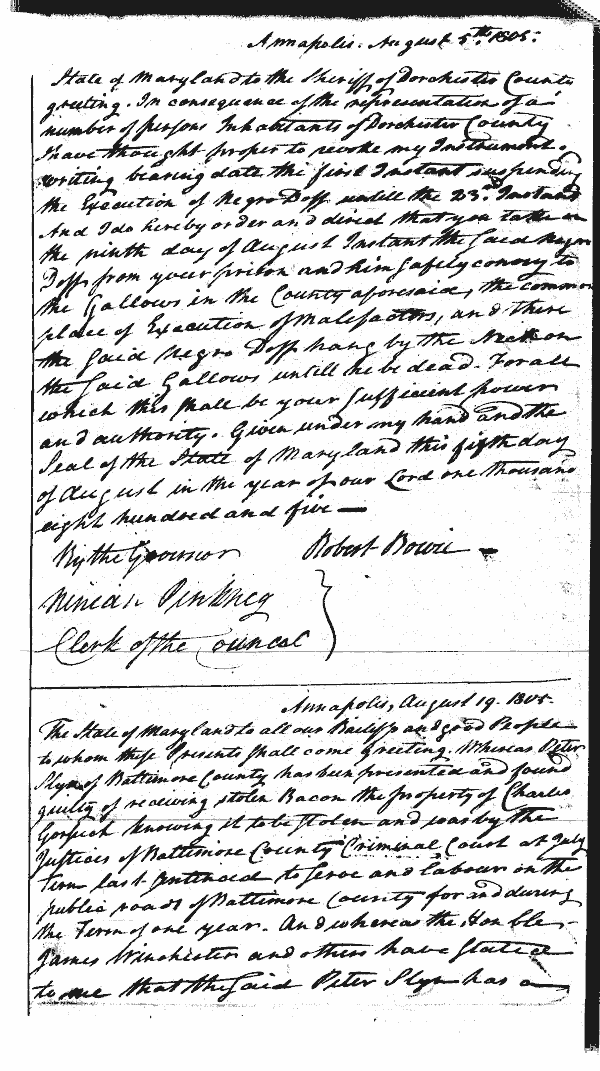 Annapolis. August 5th 1805.
State of Maryland to the Sheriff of Dorchester County
greeting. In consequence of the representation of a
number of persons Inhabitants of Dorchester County
I have thought proper to revoke my Instrument of
writing bearing date the first Instant suspending
the Execution of Negro Doff untill the 23d. Instant
And I do hereby order and direct that you take on
the ninth day of August Instant the said Negro
Doff from your prison and him safely convey to
the Gallows in the County aforesaid, the common
place of Execution of Malefactors, and there
the said Negro Doff hang by the Neck on
the said Gallows untill he be dead. For all
which this shall be your sufficient power
and authority. Given under my hand and the
Seal of the State of Maryland this fifth day
of August in the year of our Lord one thousand
eight hundred and five —
By the Governor Robert Bowie
Ninian Pinkney
Clerk of the Council
Annapolis, August 19. 1805.
The State of Maryland to all our Bailiffs and good People
to whom these Presents shall come greeting. Whereas Peter
Slyn of Baltimore County has been presented and found
guilty of receiving stolen Bacon the property of Charles
Gorsuch knowing it to be stolen and was by the
Justices of Baltimore County Criminal Court at July
Term last Sentenced to serve and labour on the
public roads of Baltimore County for and during
the Term of one year. And whereas the Hon ble
James Winchester and others have stated
to me that the said Peter Slyn has a